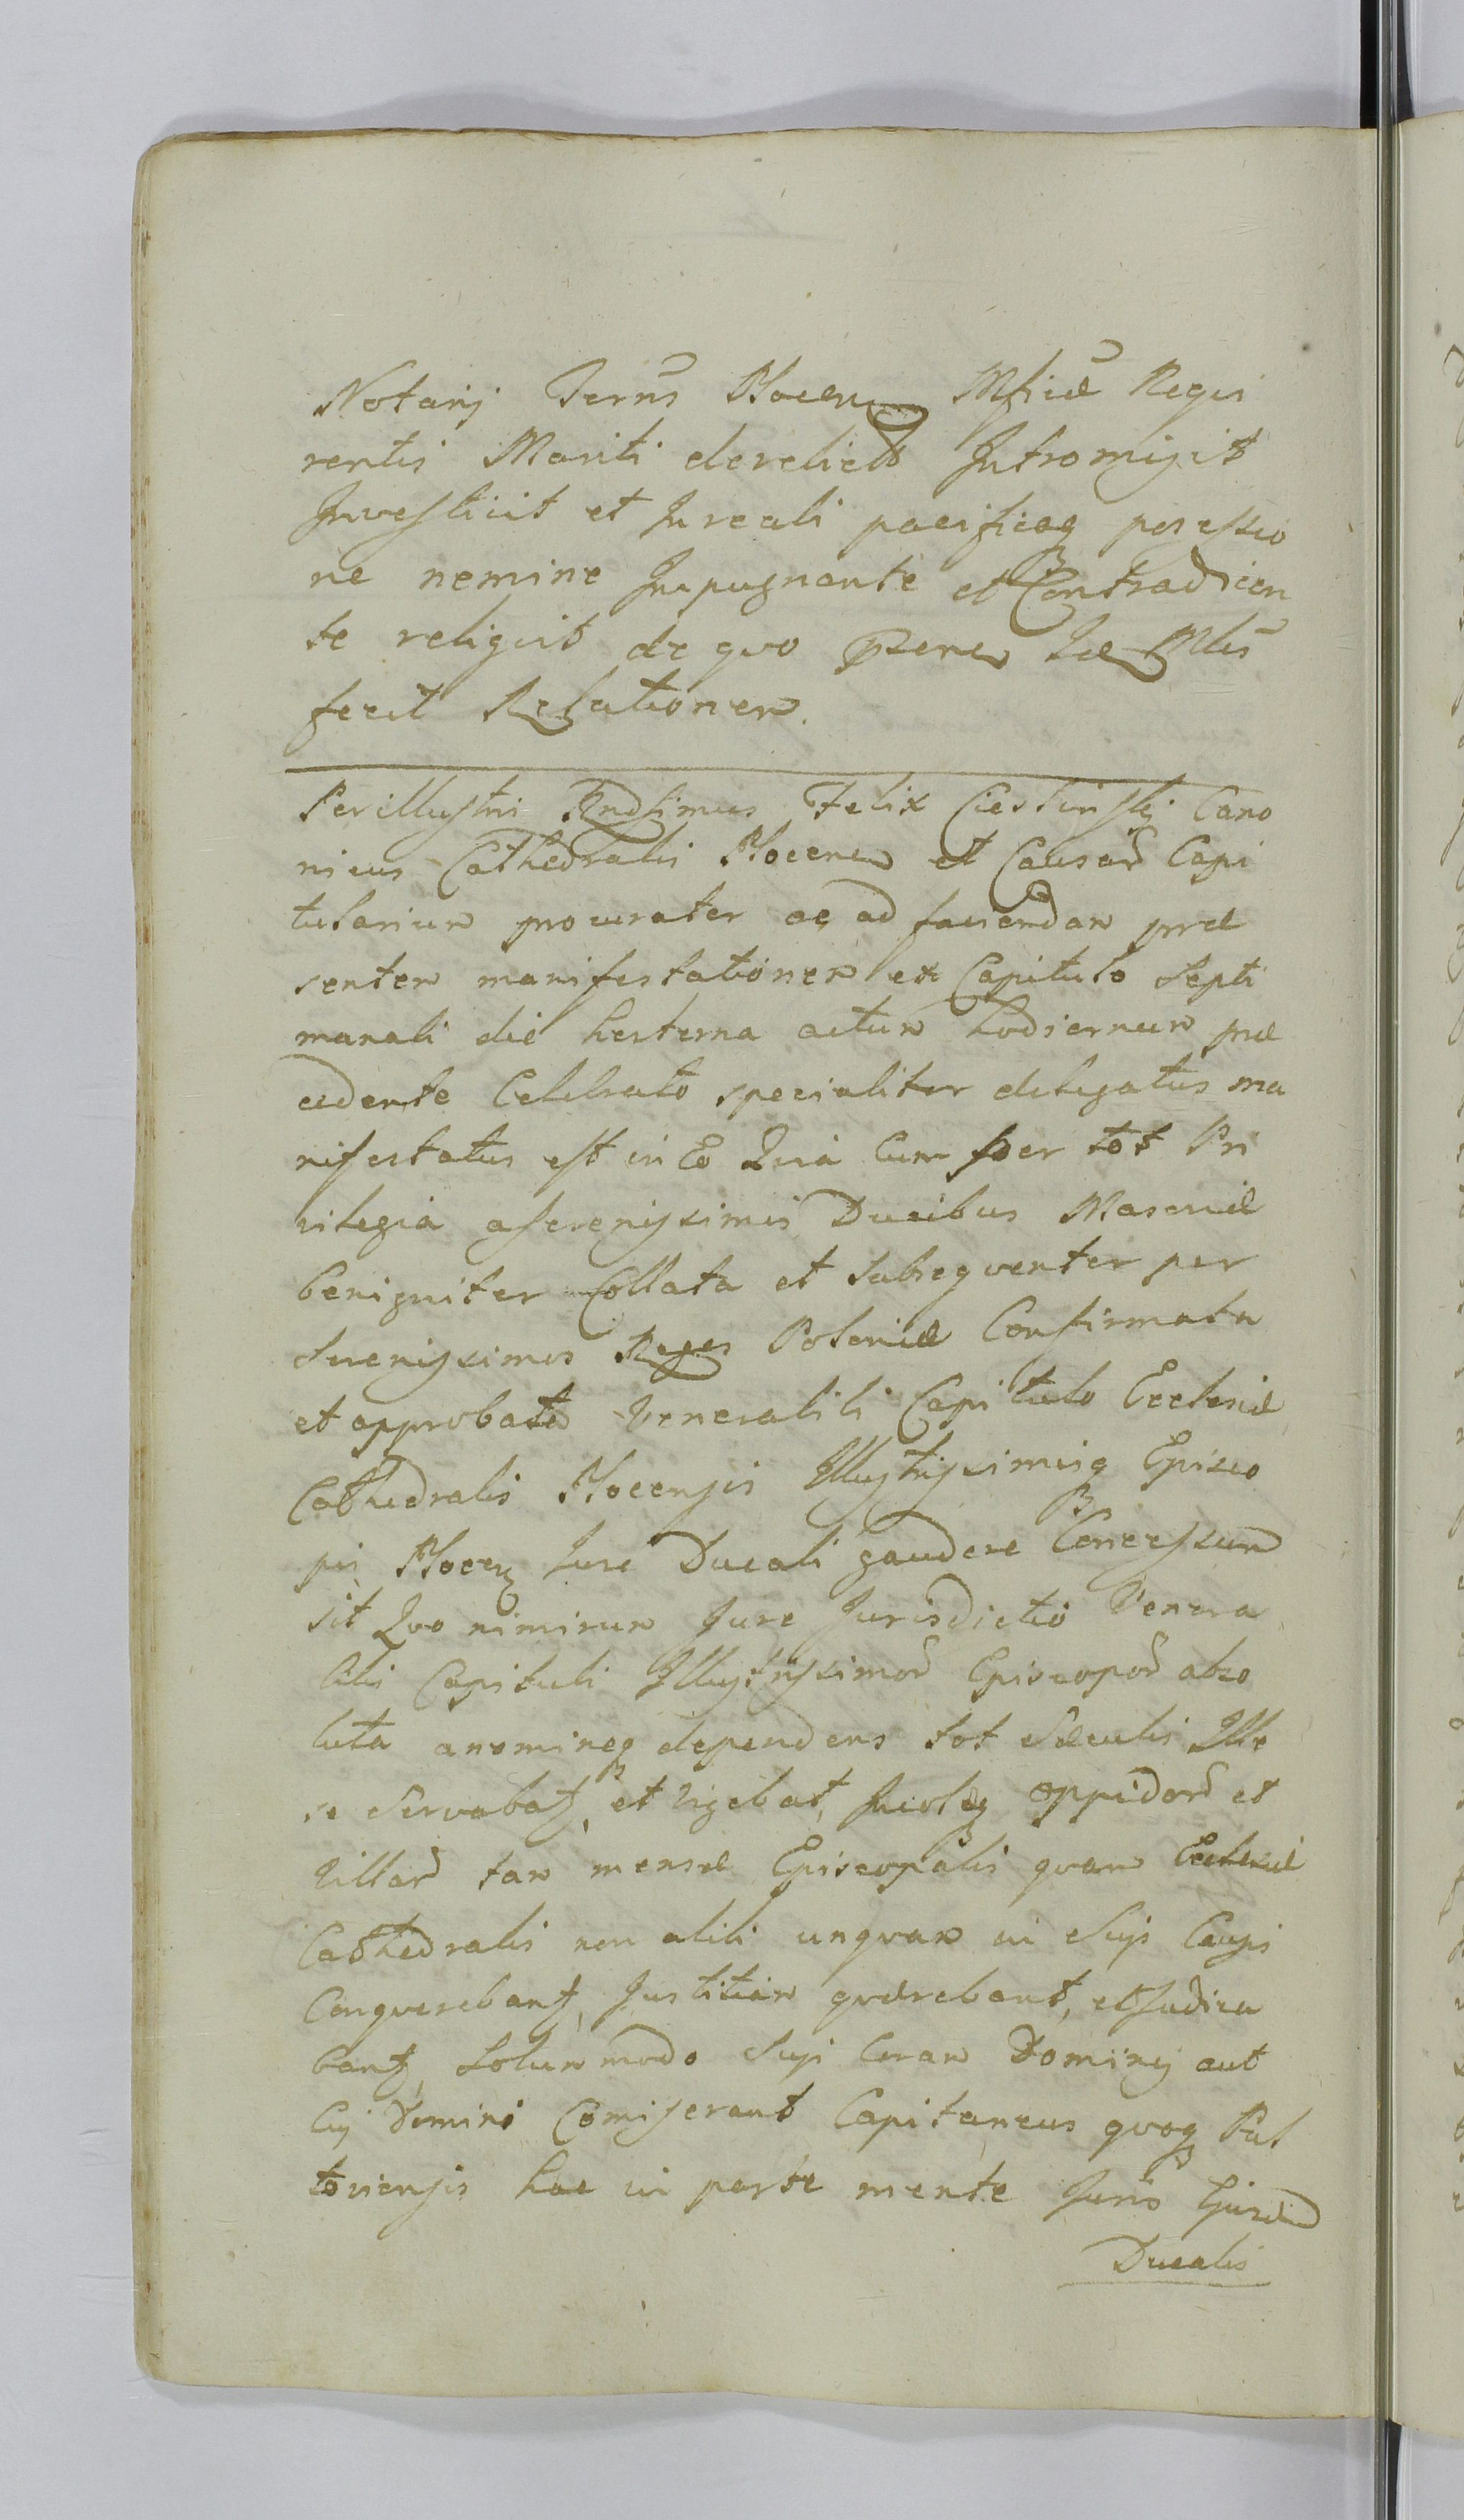 Notarij Terris Plocen Mficæ Requi
rentis Mariti derelicta Intromisit
Investivit et In reali pacificaq possessio
ne nemine Impugnante et Contradicen
te reliquit de quo præns
fecit Relationem.
Perillustris Rndssimus Felix Ciesliński Cano
nicus Cathedralis Plocen et Causar Capi
tularium procurator ac ad faciendam præ
sentem manifestationem ex Capitulo Septi
manali die hesterna actum hodiernum præ
cedente Celebrato specialiter delegatus ma
nifestatus est in Eo Quia Cum per tot Pri
vilegia a Serenissimis Ducibus Masoviæ
benigniter Collata et Subsequenter per
Serenissimos Reges Poloniæ Confirmata
et approbata Venerabili Capitulo Ecclesiæ
Cathedralis Plocensis Illustrissimisq Episco
pis Plocen Jure Ducali gaudere Concessum
sit Quo nimirum Jure Jurisdictio Venera
bilis Capituli Illustrissimor Episcopor abso
luta a nemineq dependens tot Sæculis Ille
se Servabat, et vigebat, Incolæq oppidor et
Villar tam mensæ Episcopalis quam Ecclesiæ
Cathedralis non alibi unquam in Suis Causis
Conquerebant, Justitiam quærebant, et Judica
bant, Solummodo Suis Coram Dominis aut
Cui Domini Comiserant Capitaneus quoq Pul
toviensis hac in parte mente Juris Ejusdem
Ducalis